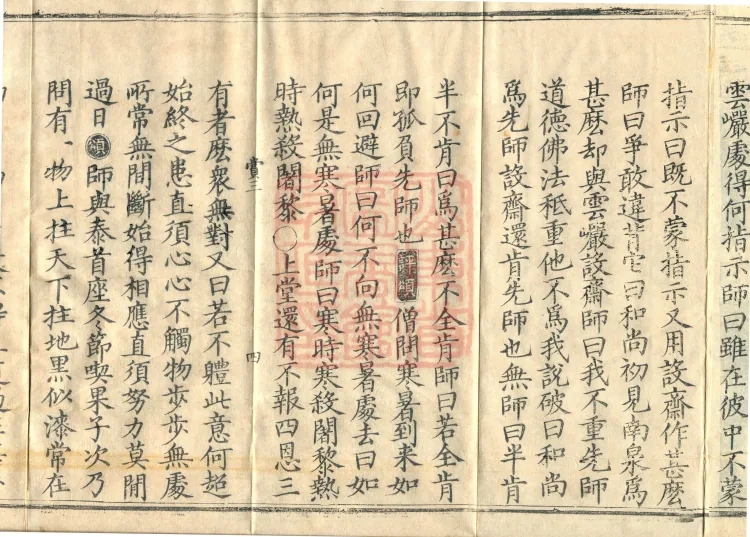 雲巖處得何指示師曰雖在彼中不蒙
指示曰既不蒙指示又用設齋作甚麽
師曰爭敢違背它曰和尚初見南泉爲
甚麽却與雲巖設齋師曰我不重先師
道德佛法秪重他不爲我說破曰和尚
爲先師設齋還肯先師也無師曰半肯
半不肯曰爲甚麽不全肯師曰若全肯
即孤負先師也 僧問寒暑到来如
何回避師曰何不向無寒暑處去曰如
何是無寒暑處師曰寒時寒殺闍黎熱
時熱殺闍黎〇上堂還有不報四恩三
賞三
四
有者麽衆無對又曰若不軆此意何超
始終之患直須心心不觸物步步無處
所常無間斷始得相應直須努力莫閒
過日 師與泰首座冬節喫果子次乃
問有一物上拄天下拄地黒似漆常在